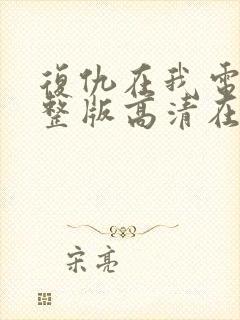 復仇在我電
整版高清在
宋亮